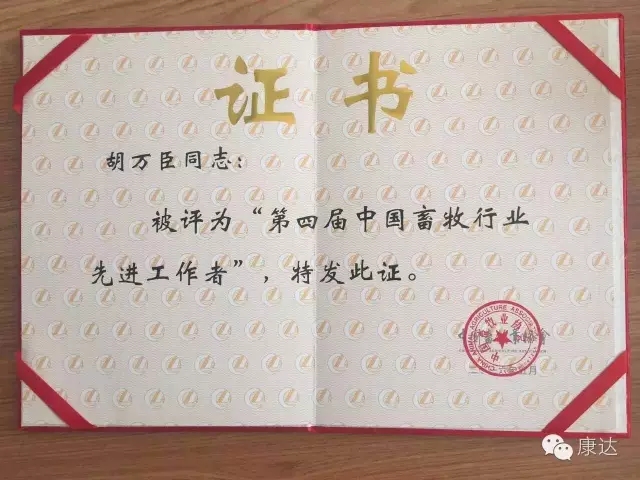 证书
胡万臣同志：
被评为“第四届中国畜牧行业
先进工作者”，特发此证。
康达